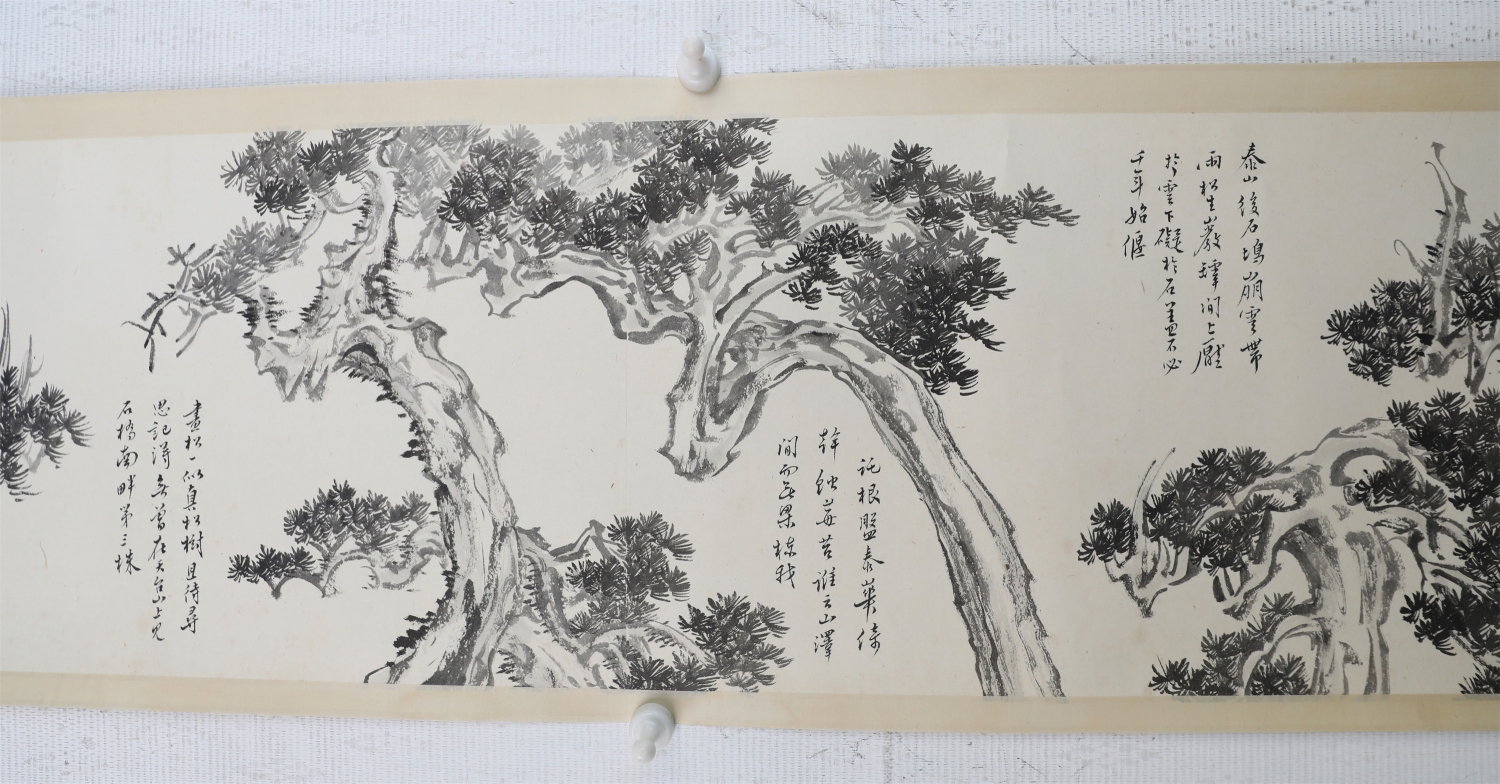 泰山後石塢崩雲帶
雨松生巖罅間上壓
於雲下礙於石蓋不必
千年始偃
託根盤泰華倚
幹蝕莓苔誰云山澤
間而無梁棟材
畫松一似真松樹且待尋
思記得無曾在天台山上見
石橋南畔第三株